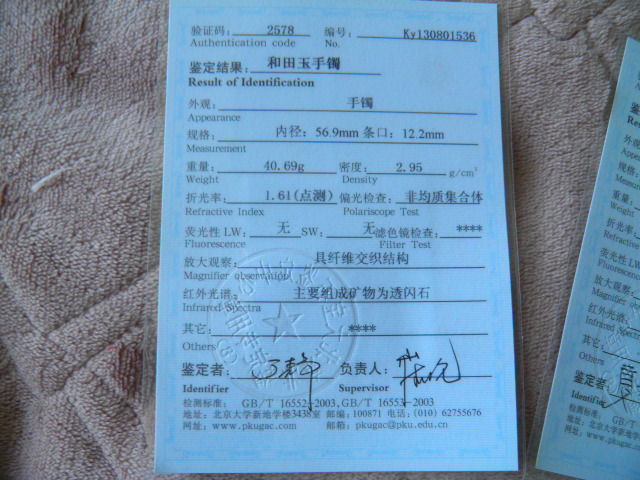 验证码: 2578 编号: Ky130801536
Authentication code No.
鉴定结果: 和田玉手镯
Result of Identification
外观: 手镯
Appearance
规格: 内径: 56.9mm 条口: 12.2mm
Measurement
重量: 40.69g 密度: 2.95 g/cm³
Weight Density
折光率: 1.61(点测) 偏光检查: 非均质集合体
Refractive Index Polariscope Test
荧光性 LW: 无 SW: 无 滤色镜检查: ****
Fluorescence Filter Test
放大观察: 具纤维交织结构
Magnifier observation
红外光谱: 主要组成矿物为透闪石
Infrared Spectra
其它: ****
Others
鉴定者: 负责人:
Identifier Supervisor
检测标准: GB/T 16552-2003, GB/T 16553-2003
地址: 北京大学新地学楼3438室 邮编: 100871 电话: (010) 62755676
网址: www.pkugac.com 邮箱: pkugac@pku.edu.cn
验
Au
鉴定
Re
外观
Appea
规格:
Meas
重量:
Weight
折光率
Refract
荧光性 L
Fluoresc
放大观察:
Magnifier
红外光谱:
Infrared Spec
其它:
Others
鉴定者
Identifier
检测标准: GB/T
地址: 北京大学新地
网址: www.pkug